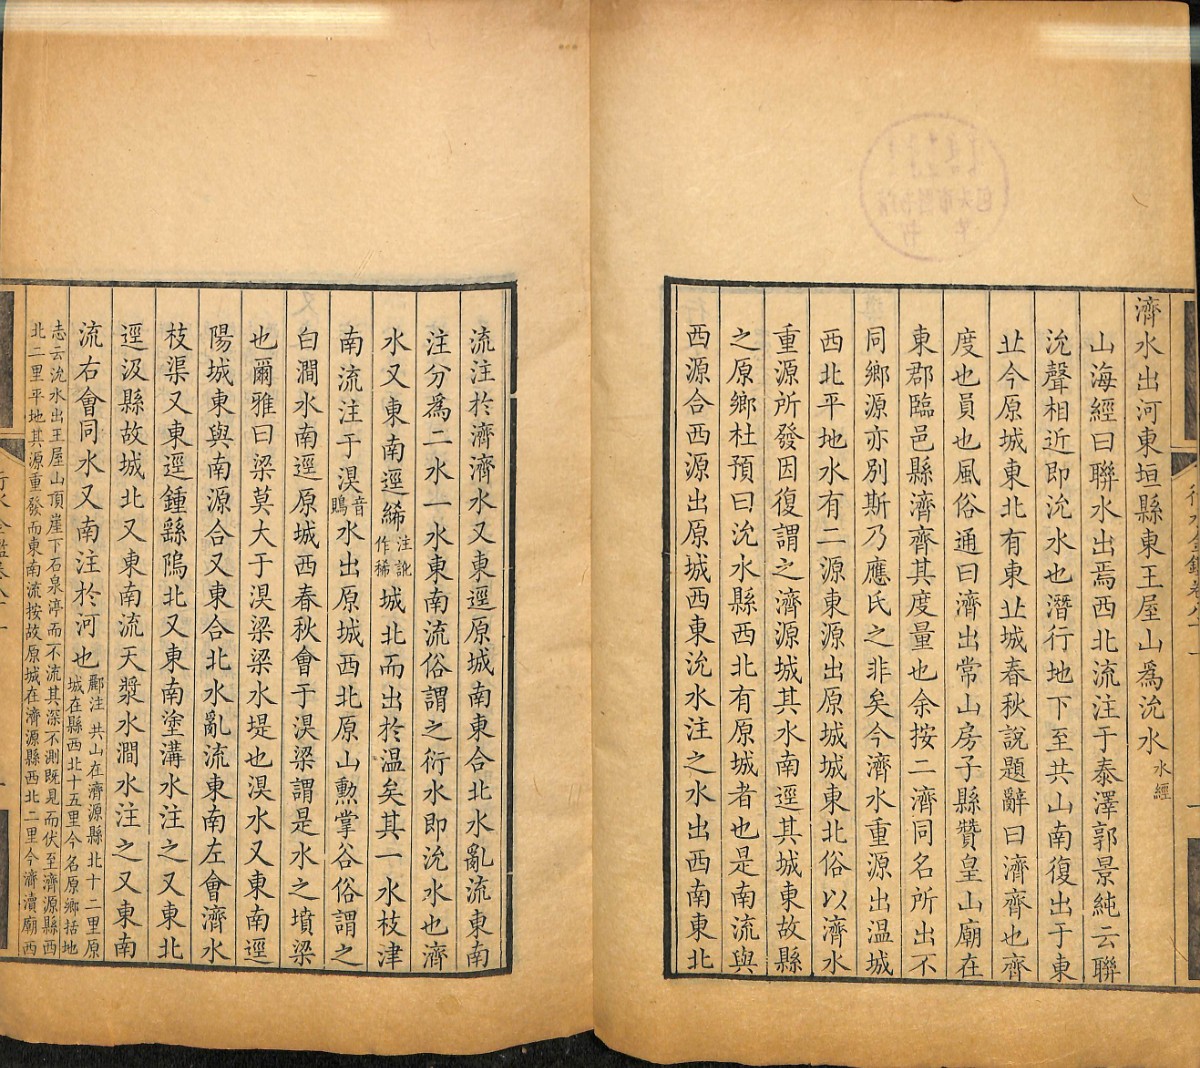 濟水出河東垣縣東王屋山爲沇水水經
山海經曰聯水出焉西北流注于泰澤郭景純云聯
沇聲相近即沇水也潛行地下至共山南復出于東
丠今原城東北有東丠城春秋說題辭曰濟齊也齊
度也員也風俗通曰濟出常山房子縣贊皇山廟在
東郡臨邑縣濟齊其度量也余按二濟同名所出不
同鄉源亦別斯乃應氏之非矣今濟水重源出温城
西北平地水有二源東源出原城東北俗以濟水
重源所發因復謂之濟源城其水南逕其城東故縣
之原鄉杜預曰沇水縣西北有原城者也是南流與
西源合西源出原城西東沇水注之水出西南東北
流注於濟濟水又東逕原城南東合北水亂流東南
注分爲二水一水東南流俗謂之衍水即沇水也濟
水又東南逕絺注訛作稀城北而出於温矣其一水枝津
南流注于湨音鶪水出原城西北原山勲掌谷俗謂之
白澗水南逕原城西春秋會于湨梁謂是水之墳梁
也爾雅曰梁莫大于湨梁梁水堤也湨水又東南逕
陽城東與南源合又東合北水亂流東南左會濟水
枝渠又東逕鍾繇隖北又東南塗溝水注之又東北
逕汲縣故城北又東南流天漿水澗水注之又東南
流右會同水又南注於河也酈注 共山在濟源縣北十二里原
城在縣西北十五里今名原鄉括地
志云沇水出王屋山頂崖下石泉渟而不流其深不測既見而伏至濟源縣西
北二里平地其源重發而東南流按故原城在濟源縣西北二里今濟瀆廟西